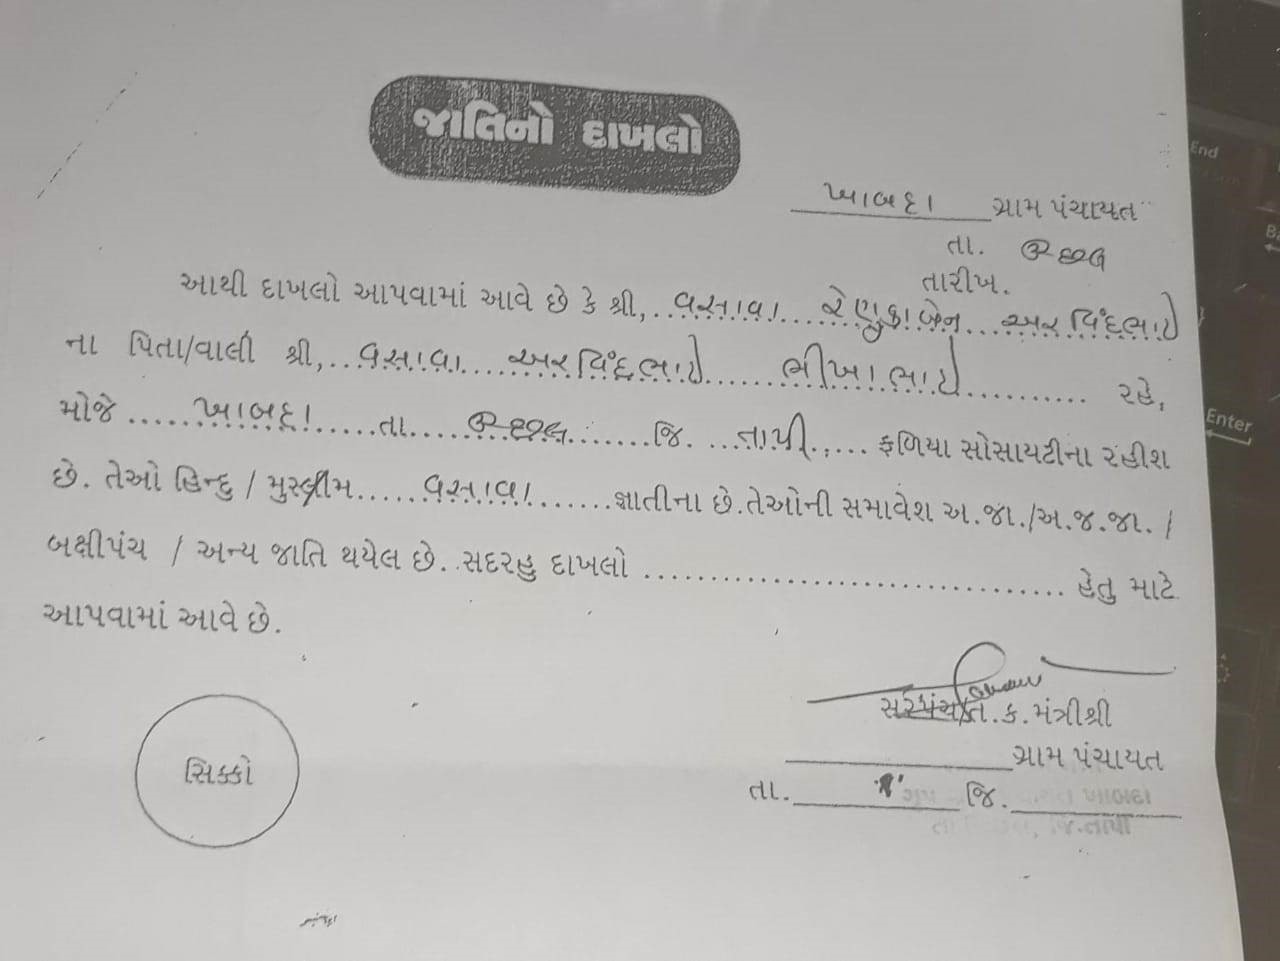 જાતિનો દાખલો
ખાબદા ગ્રામ પંચાયત
તા. ઉચ્છલ
તારીખ.
આથી દાખલો આપવામાં આવે છે કે શ્રી, વસાવા રેણુકાબેન અરવિંદભાઈ
ના પિતા/વાલી શ્રી, વસાવા અરવિંદભાઈ ભીખાભાઈ રહે,
મોજે ખાબદા તા. ઉચ્છલ જિ. તાપી ફળિયા સોસાયટીના રહીશ
છે. તેઓ હિન્દુ / મુસ્લીમ વસાવા જ્ઞાતીના છે. તેઓની સમાવેશ અ.જા./અ.જ.જા. /
બક્ષીપંચ / અન્ય જાતિ થયેલ છે. સદરહુ દાખલો ........ હેતુ માટે
આપવામાં આવે છે.
સરપંચ/ત.ક.મંત્રીશ્રી
ગ્રામ પંચાયત
સિક્કો
તા. જિ.
ખાબદા
જિ.તાપી
End
Enter